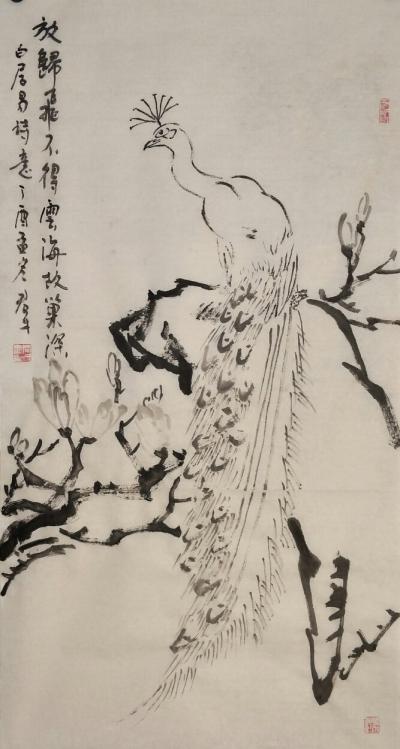 放歸飛不得雲海故巢深
白居易詩意丁酉孟